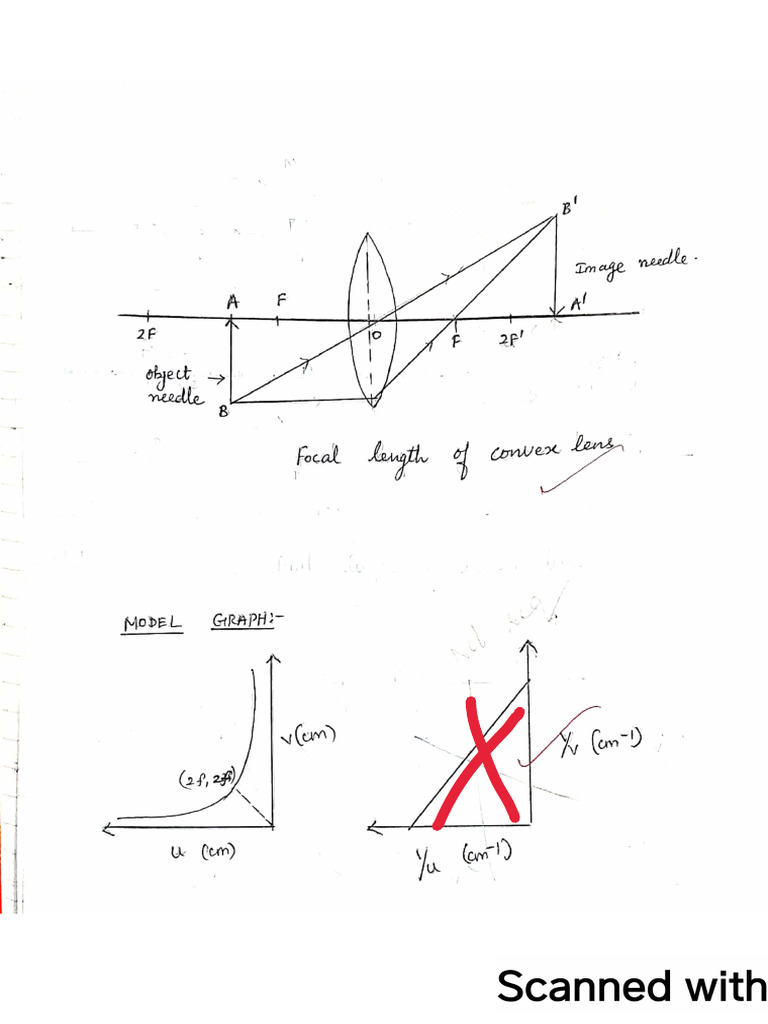 B'
Image needle.
A F
A'
2F
O
F
2F'
object
needle
B
Focal length of convex lens
MODEL GRAPH:-
V(cm)
1/v (cm-1)
u (cm)
1/u (cm-1)
Scanned with